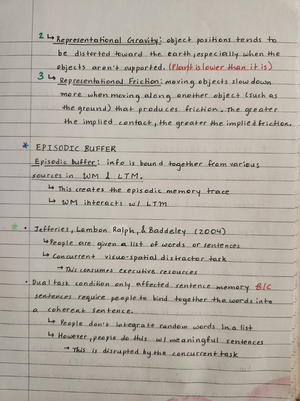 2 ↳ Representational Gravity: object positions tends to
be distorted toward the earth, especially when the
objects aren't supported. (Plant is lower than it is)
3 ↳ Representational Friction: moving objects slow down
more when moving along another object (such as
the ground) that produces friction. The greater
the implied contact, the greater the implied friction.
* EPISODIC BUFFER
Episodic buffer: info is bound together from various
sources in WM & LTM.
↳ This creates the episodic memory trace
↳ WM interacts w/ LTM
* • Jefferies, Lambon Ralph, & Baddeley (2004)
↳ People are given a list of words or sentences
↳ Concurrent visuo-spatial distractor task
→ This consumes executive resources
• Dual task condition only affected sentence memory B/C
sentences require people to bind together the words into
a coherent sentence.
↳ People don't integrate random words in a list
↳ However, people do this w/ meaningful sentences
→ This is disrupted by the concurrent task